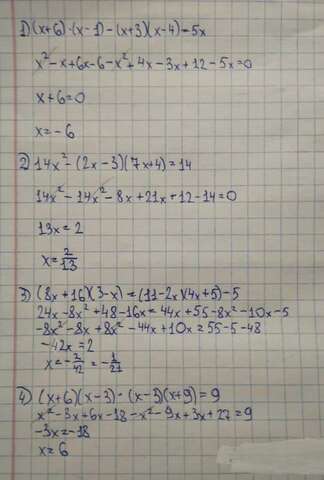 1) (x+6)·(x-1)-(x+3)(x-4)=5x
x²-x+6x-6-x²+4x-3x+12-5x=0
x+6=0
x=-6
2) 14x²-(2x-3)(7x+4)=14
14x²-14x²-8x+21x+12-14=0
13x=2
x=2/13
3) (8x+16)(3-x)=(11-2x)(4x+5)-5
24x-8x²+48-16x=44x+55-8x²-10x-5
-8x²-8x+8x²-44x+10x=55-5-48
-42x=2
x=-2/42=-1/21
4) (x+6)(x-3)-(x-3)(x+9)=9
x²-3x+6x-18-x²-9x+3x+27=9
-3x=-18
x=6